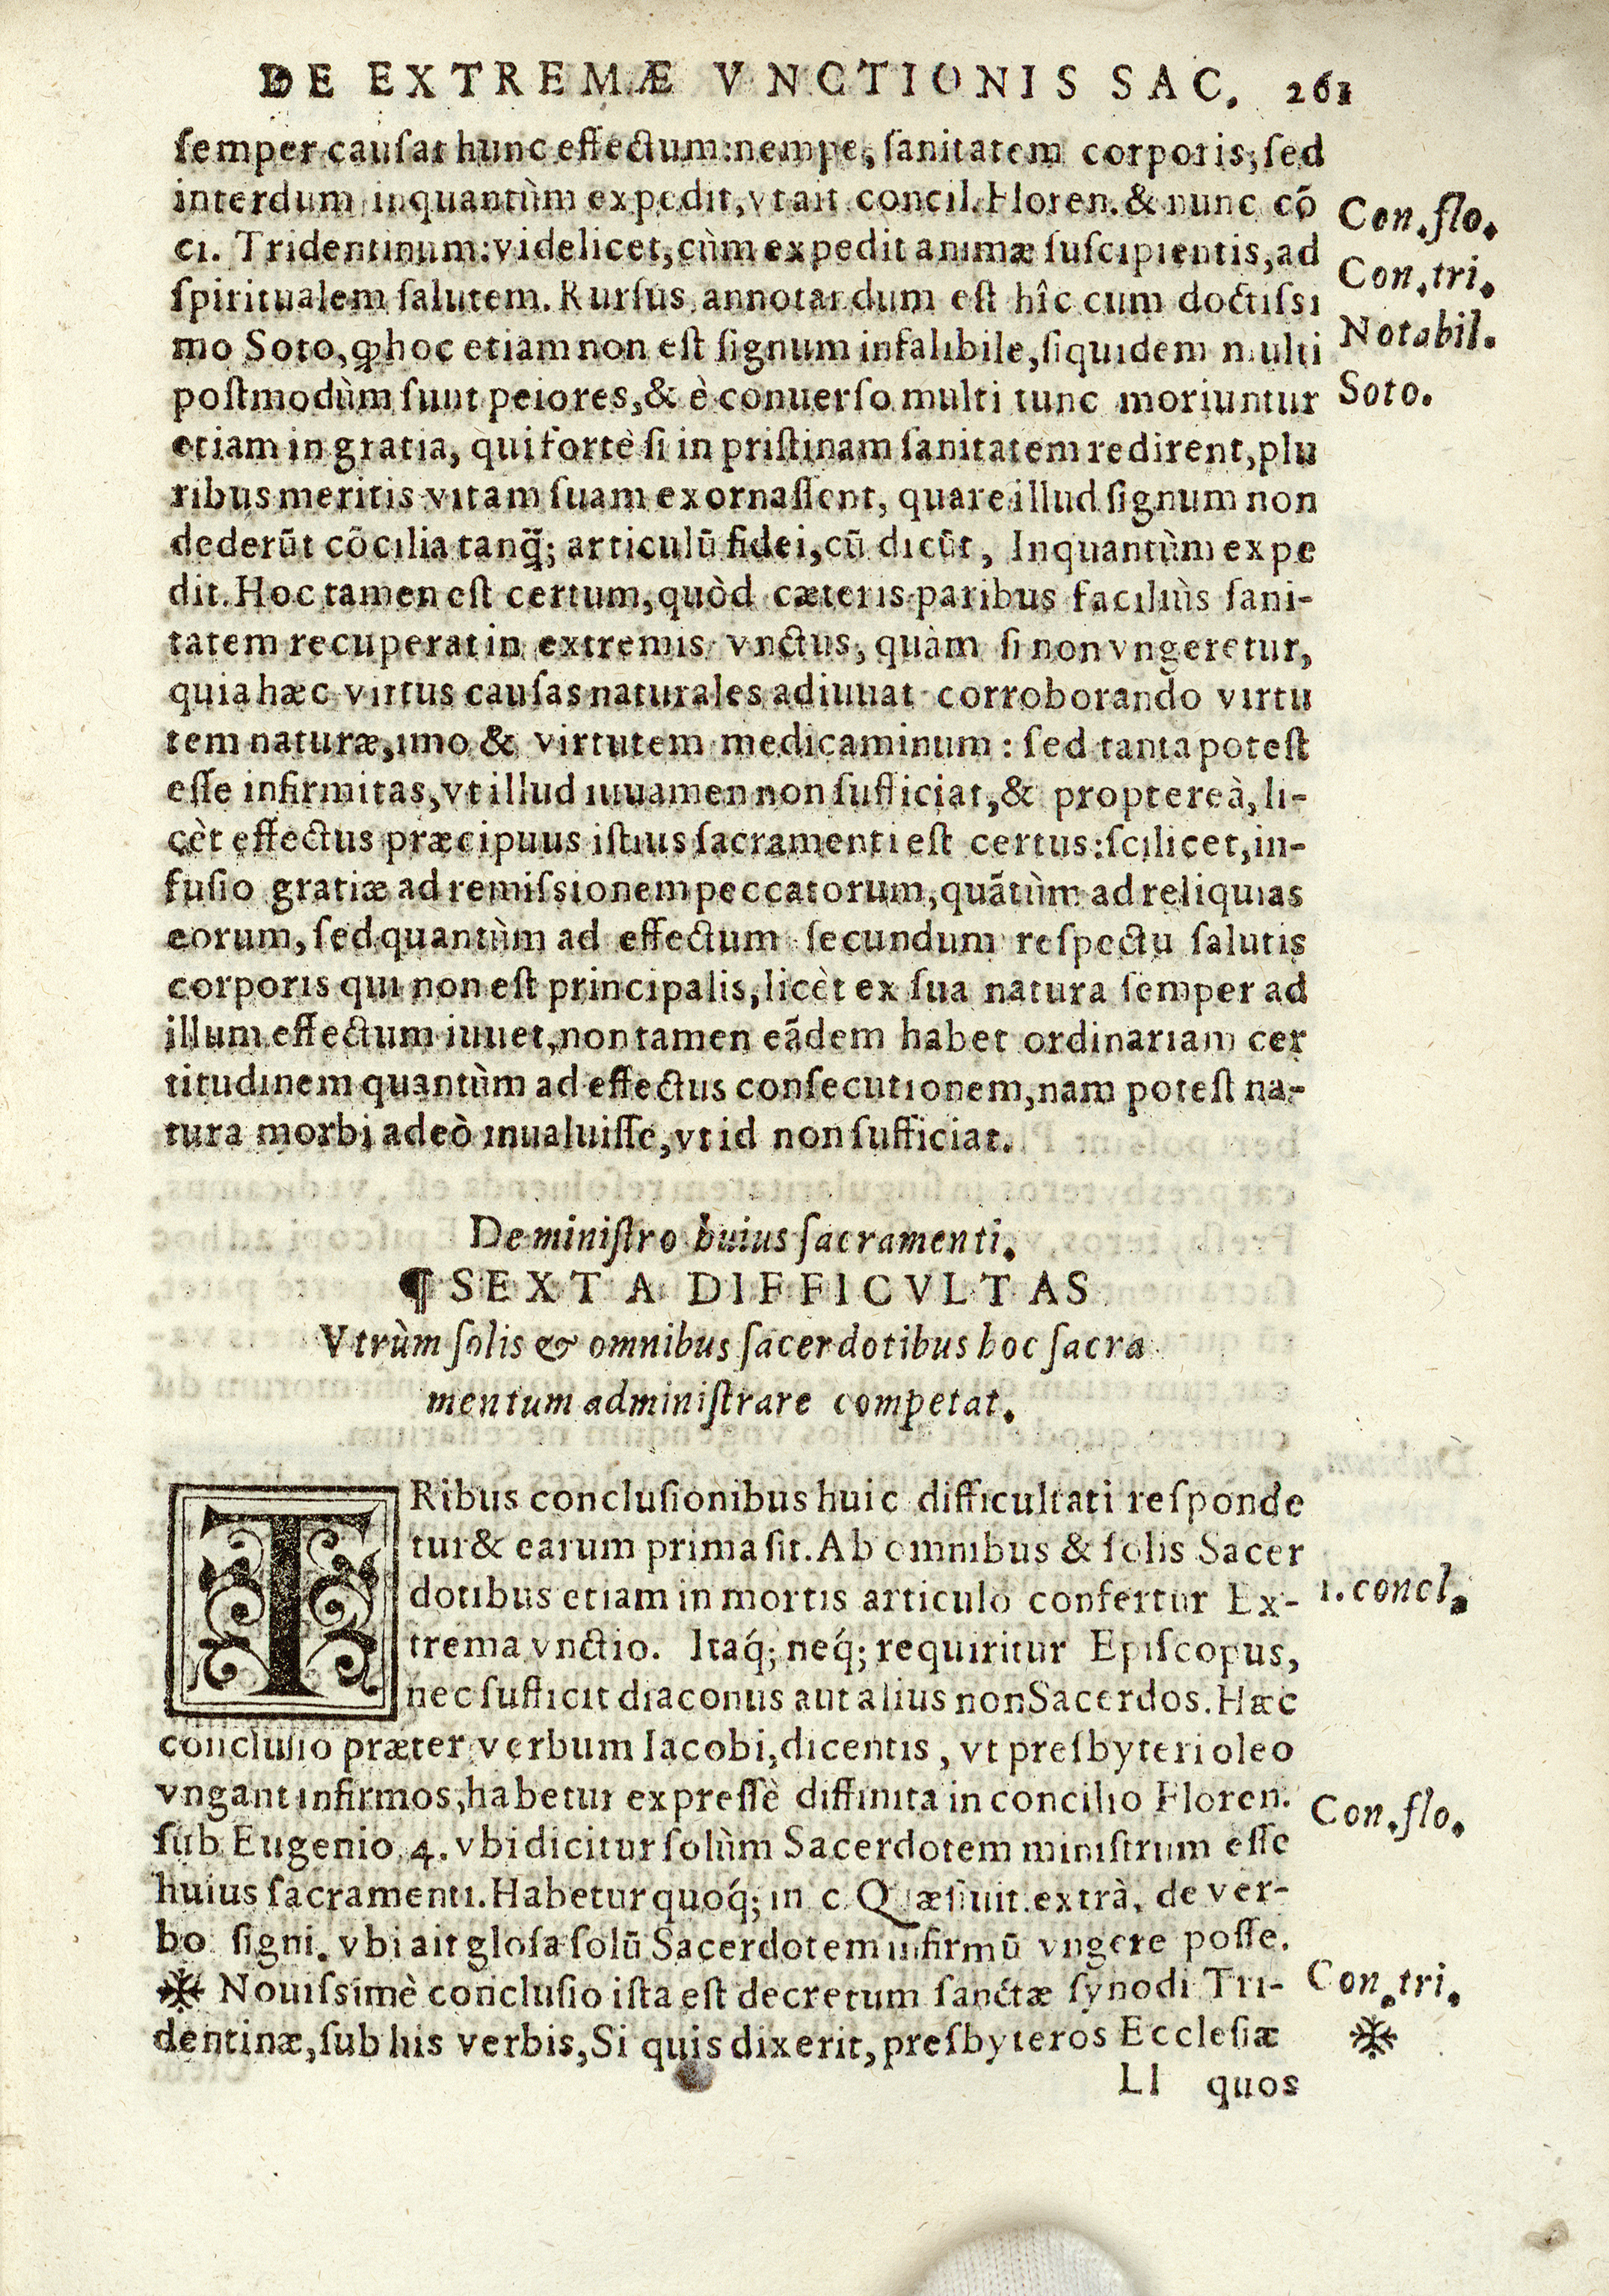 DE EXTREMÆ VNCTIONIS SAC. 261
semper causat hunc effectum: nempe, sanitatem corporis, sed
interdum inquantùm expedit, vt ait concil. Floren. & nunc cō
ci. Tridentinum: videlicet, cùm expedit animæ suscipientis, ad
spiritualem salutem. Rursus annotandum est hîc cum doctissi
mo Soto, ꝙ hoc etiam non est signum infalibile, siquidem multi
postmodùm sunt peiores, & è conuerso multi tunc moriuntur
etiam in gratia, qui fortè si in pristinam sanitatem redirent, plu
ribus meritis vitam suam exornassent, quare illud signum non
dederūt cōcilia tanq̄; articulū fidei, cū dicūt, Inquantùm expe
dit. Hoc tamen est certum, quòd cæteris paribus faciliùs sani-
tatem recuperat in extremis vnctus, quàm si non vngeretur,
quia hæc virtus causas naturales adiuuat corroborando virtu
tem naturæ, imo & virtutem medicaminum: sed tanta potest
esse infirmitas, vt illud iuuamen non sufficiat, & proptereà, li-
cèt effectus præcipuus istius sacramenti est certus: scilicet, in-
fusio gratiæ ad remissionem peccatorum, quātùm ad reliquias
eorum, sed quantùm ad effectum secundum respectu salutis
corporis qui non est principalis, licèt ex sua natura semper ad
illum effectum iuuet, non tamen eādem habet ordinariam cer
titudinem quantùm ad effectus consecutionem, nam potest na-
tura morbi adeò inualuisse, vt id non sufficiat.
Con. flo.
Con. tri.
Notabil.
Soto.
De ministro huius sacramenti.
¶ SEXTA DIFFICVLTAS
Vtrùm solis & omnibus sacerdotibus hoc sacra
mentum administrare competat.
TRibus conclusionibus huic difficultati responde
tur & earum prima sit. Ab omnibus & solis Sacer
dotibus etiam in mortis articulo confertur Ex-
trema vnctio. Itaq́; neq́; requiritur Episcopus,
nec sufficit diaconus aut alius non Sacerdos. Hæc
conclusio præter verbum Iacobi, dicentis, vt presbyteri oleo
vngant infirmos, habetur expressè diffinita in concilio Floren.
sub Eugenio 4. vbi dicitur solùm Sacerdotem ministrum esse
huius sacramenti. Habetur quoq́; in c. Quæsiuit. extrà. de ver-
bo signi. vbi ait glosa solū Sacerdotem infirmū vngere posse.
❋ Nouissimè conclusio ista est decretum sanctæ synodi Tri-
dentinæ, sub his verbis, Si quis dixerit, presbyteros Ecclesiæ
1. concl.
Con. flo.
Con. tri.
❋
Ll quos